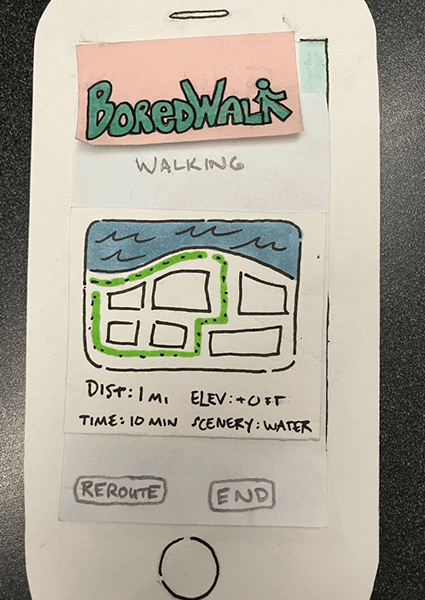 BOREDWALK
WALKING
DIST: 1 MI ELEV: +0 FT
TIME: 10 MIN SCENERY: WATER
REROUTE END